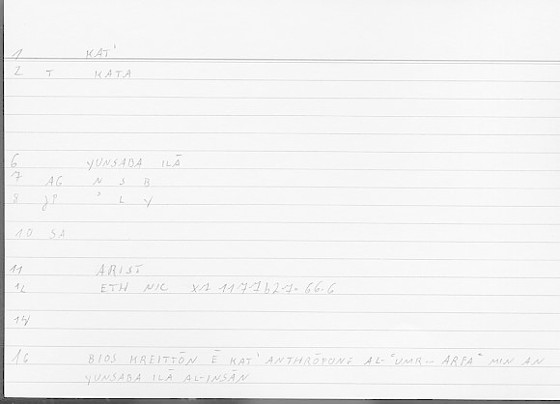 1 KAT'
2 T KATA
6 YUNSABA ILĀ
7 AG N S B
8 JP ʾ L Y
10 SA
11 ARIST
12 ETH NIC X7 1177b27 = 66.6
14
16 BIOS KREITTŌN Ē KAT' ANTHRŌPONE AL-ʿUMR - ARFAʿ MIN AN
YUNSABA ILĀ AL-INSĀN